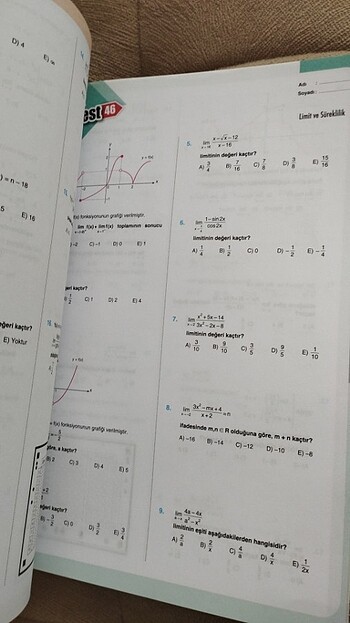 D) 4
E) ∞
) = n – 18
5
E) 16
ğeri kaçtır?
E) Yoktur
est 46
Adı :
Soyadı :
Limit ve Süreklilik
y = f(x)
f(x) fonksiyonunun grafiği verilmiştir.
lim f(x) + lim f(x) toplamının sonucu
–2 C) –1 D) 0 E) 1
ğeri kaçtır?
C) 1 D) 2 E) 4
10.
y = f(x)
f(x) fonksiyonunun grafiği verilmiştir.
göre, a kaçtır?
B) 2 C) 3 D) 4 E) 5
ğeri kaçtır?
B) –3/2 C) 0 D) 3/2 E) 3/4
5. lim x→16 x – √x – 12 / x – 16
limitinin değeri kaçtır?
A) 3/4 B) 7/16 C) 7/8 D) 3/8 E) 15/16
6. lim 1 – sin2x / cos2x
limitinin değeri kaçtır?
A) 1/4 B) 1/2 C) 0 D) –1/2 E) –1/4
7. lim x→2 x² + 5x – 14 / 3x² – 2x – 8
limitinin değeri kaçtır?
A) 3/10 B) 9/10 C) 3/5 D) 9/5 E) 1/10
8. lim x→–2 3x² – mx + 4 / x + 2 = n
ifadesinde m,n ∈ R olduğuna göre, m + n kaçtır?
A) –16 B) –14 C) –12 D) –10 E) –8
9. lim 4a – 4x / a² – x²
limitinin eşiti aşağıdakilerden hangisidir?
A) 2/a B) 2/x C) 4/a D) 4/x E) 1/2x